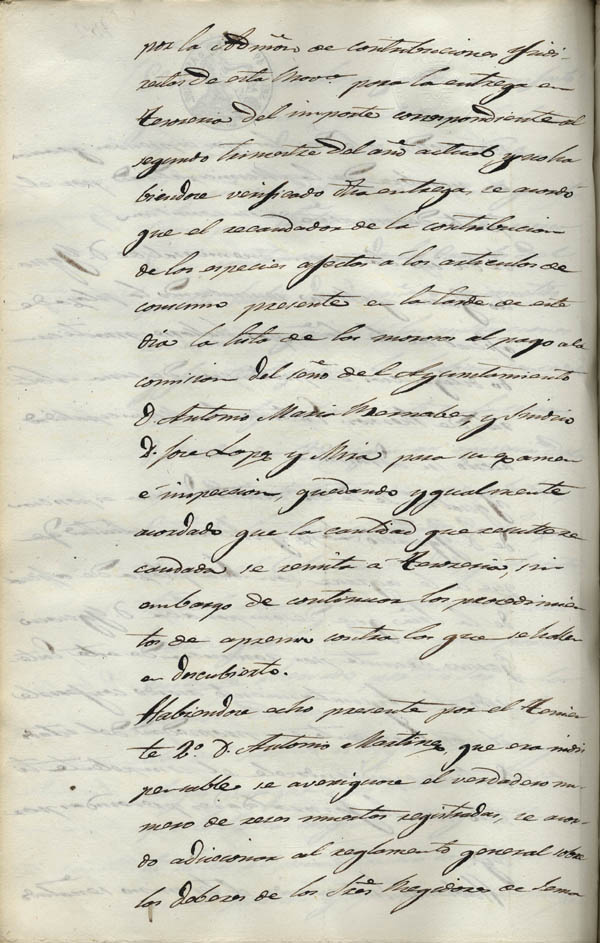 por la Admōn. de contribuciones Yndi-
rectas de esta Prova. para la entrega en
Tesoreria del importe correspondiente al
segundo trimestre del año actual, y no ha
biendose verificado dha entrega, se acordó
que el recaudador de la contribucion
de las especies afectas á los articulos de
consumo presente en la tarde de este
dia la lista de los morosos al pago a la
comision del seno del Ayuntamiento
D. Antonio Maria Bernabeu, y Sindico
D. Jose Lopez y Mira para su examen
é inspeccion, quedando ygualmente
acordado que la cantidad que resulte re
caudada se remita a Tesoreria, sin
embargo de continuar los procedimien
tos de apremio contra los que se hallen
en descubierto.
Habiendose echo presente por el Tenien
te 2º. D. Antonio Martinez que era indis
pensable se averiguase el verdadero nu-
mero de reses muertas registradas, se acor-
dó adicionar al reglamento general sobre
los deberes de los Sres Regidores de sema